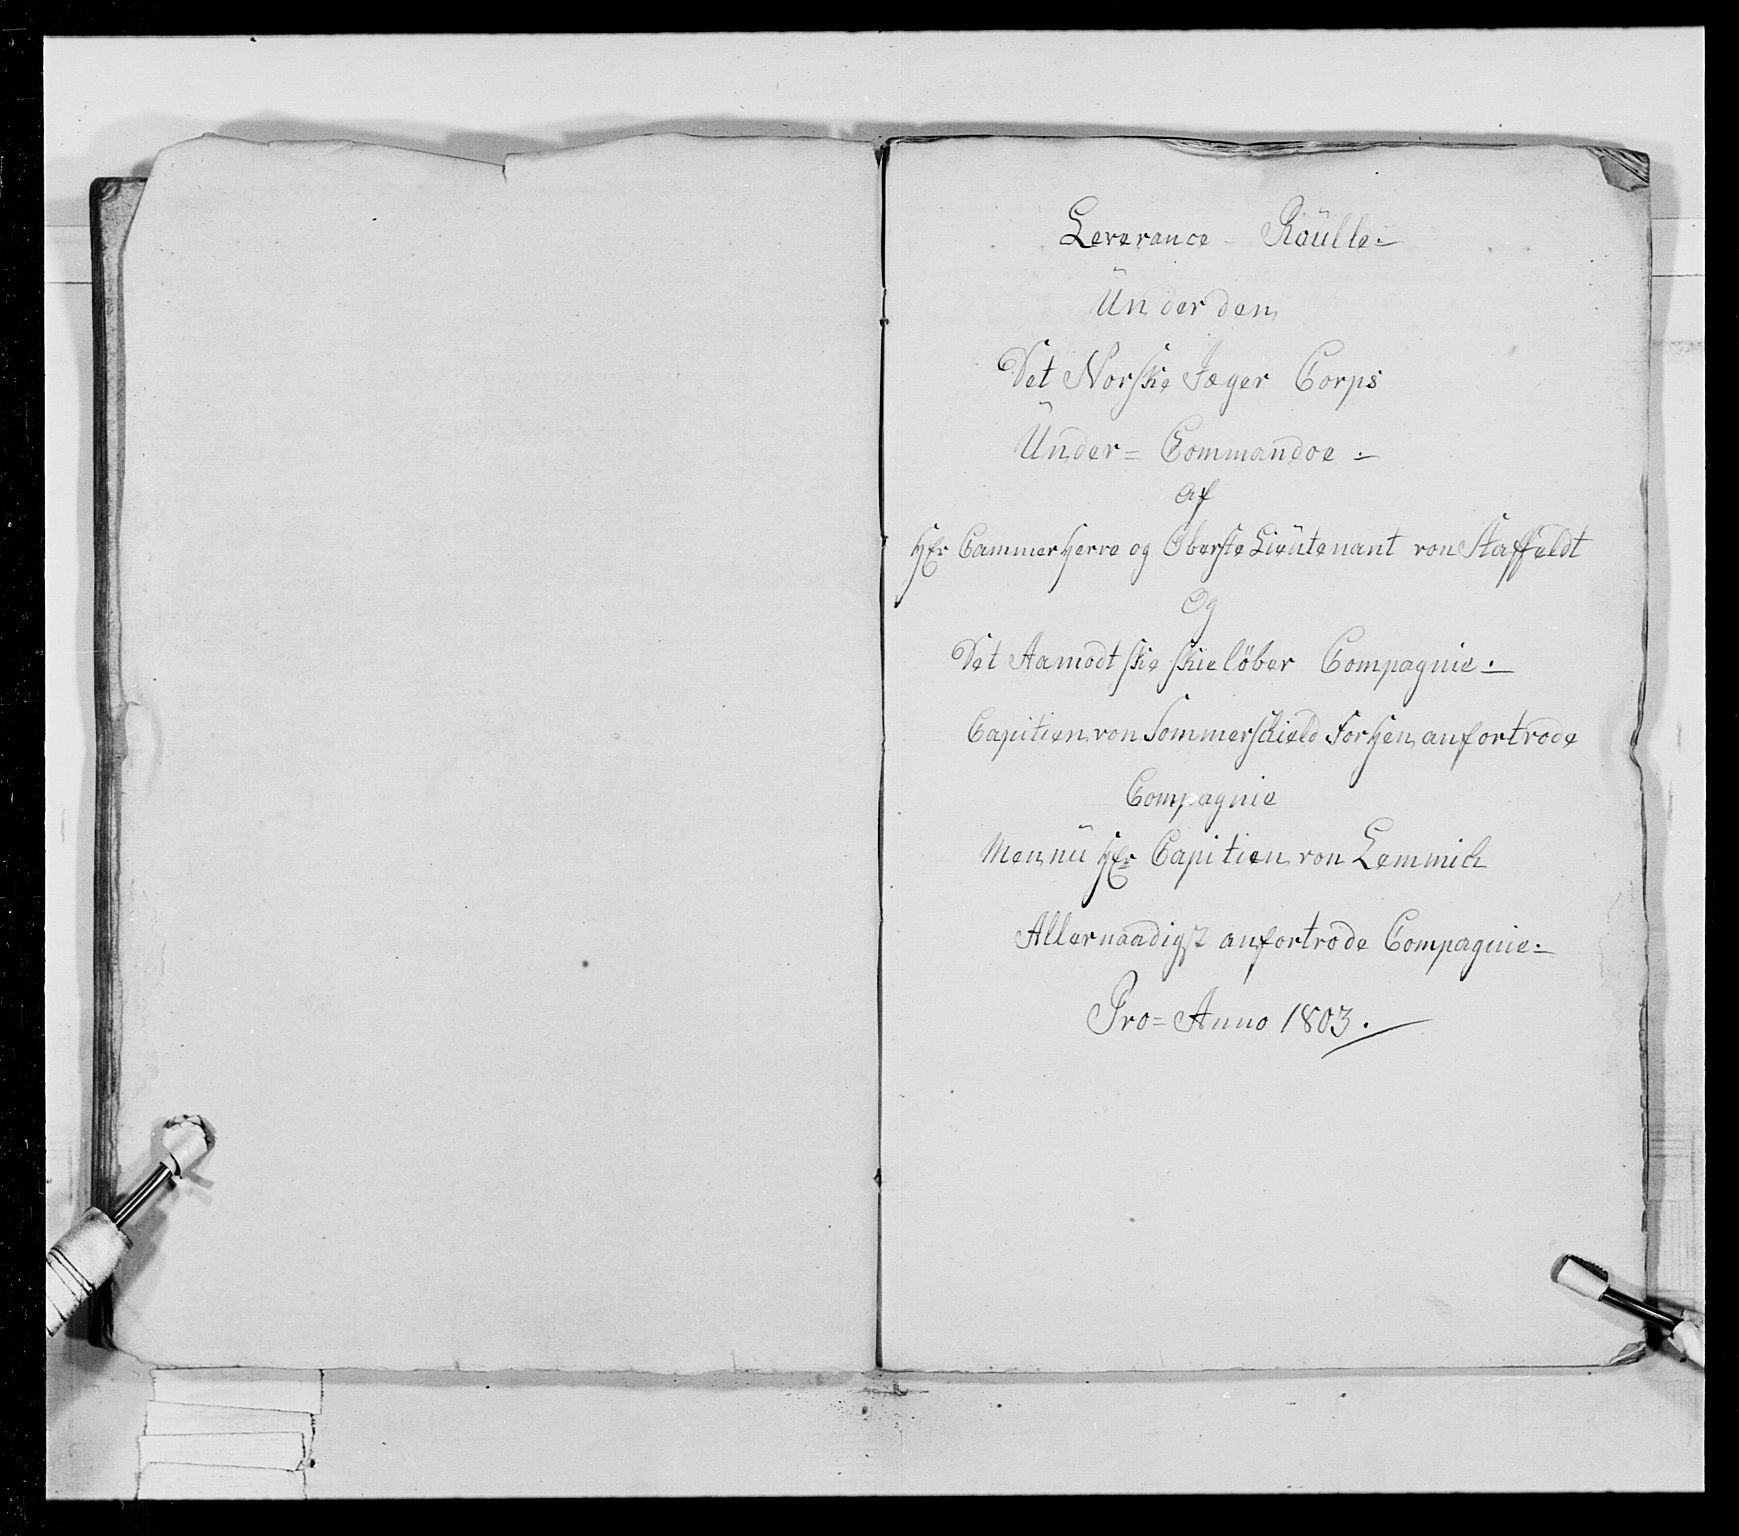 Leverance - Roülle.
Ünder den
Det Norske Jæger Corps
Ünder = Commandoe.
af
Hr Cammerherre og Oberste Lieütenant von Staffeldt
Og
Det Aamodtske Skielöber Compagnie.
Capitien von Sommerskield Forhen anfortrode
Compagnie
Men nü Hr Capitien von Lemmich
Allernaadigst anfortrode Compagnie.
Pro = Anno 1803.